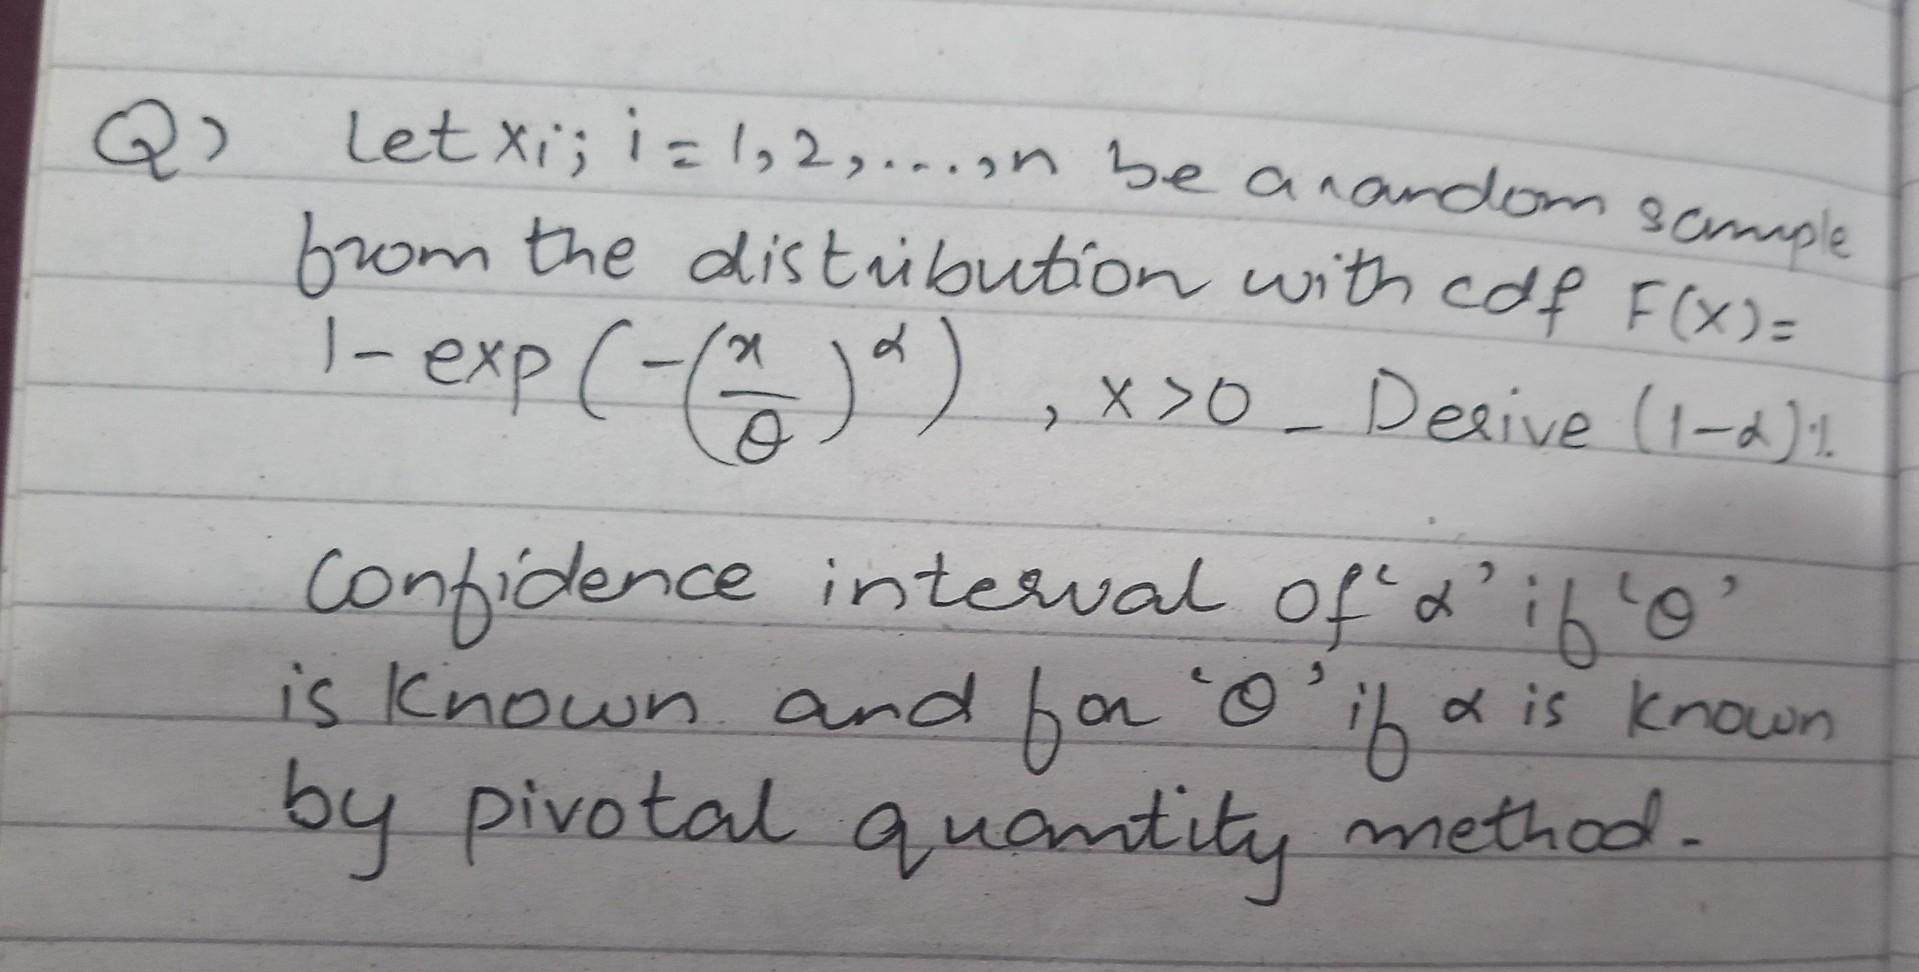 Q) Let xi; i = 1, 2, ..., n be a random sample
from the distribution with cdf F(x) =
1 - exp(-(x/θ)^α), x>0. Derive (1-α)%
Confidence interval of 'α' if 'θ'
is known and for 'θ' if α is known
by pivotal quantity method.